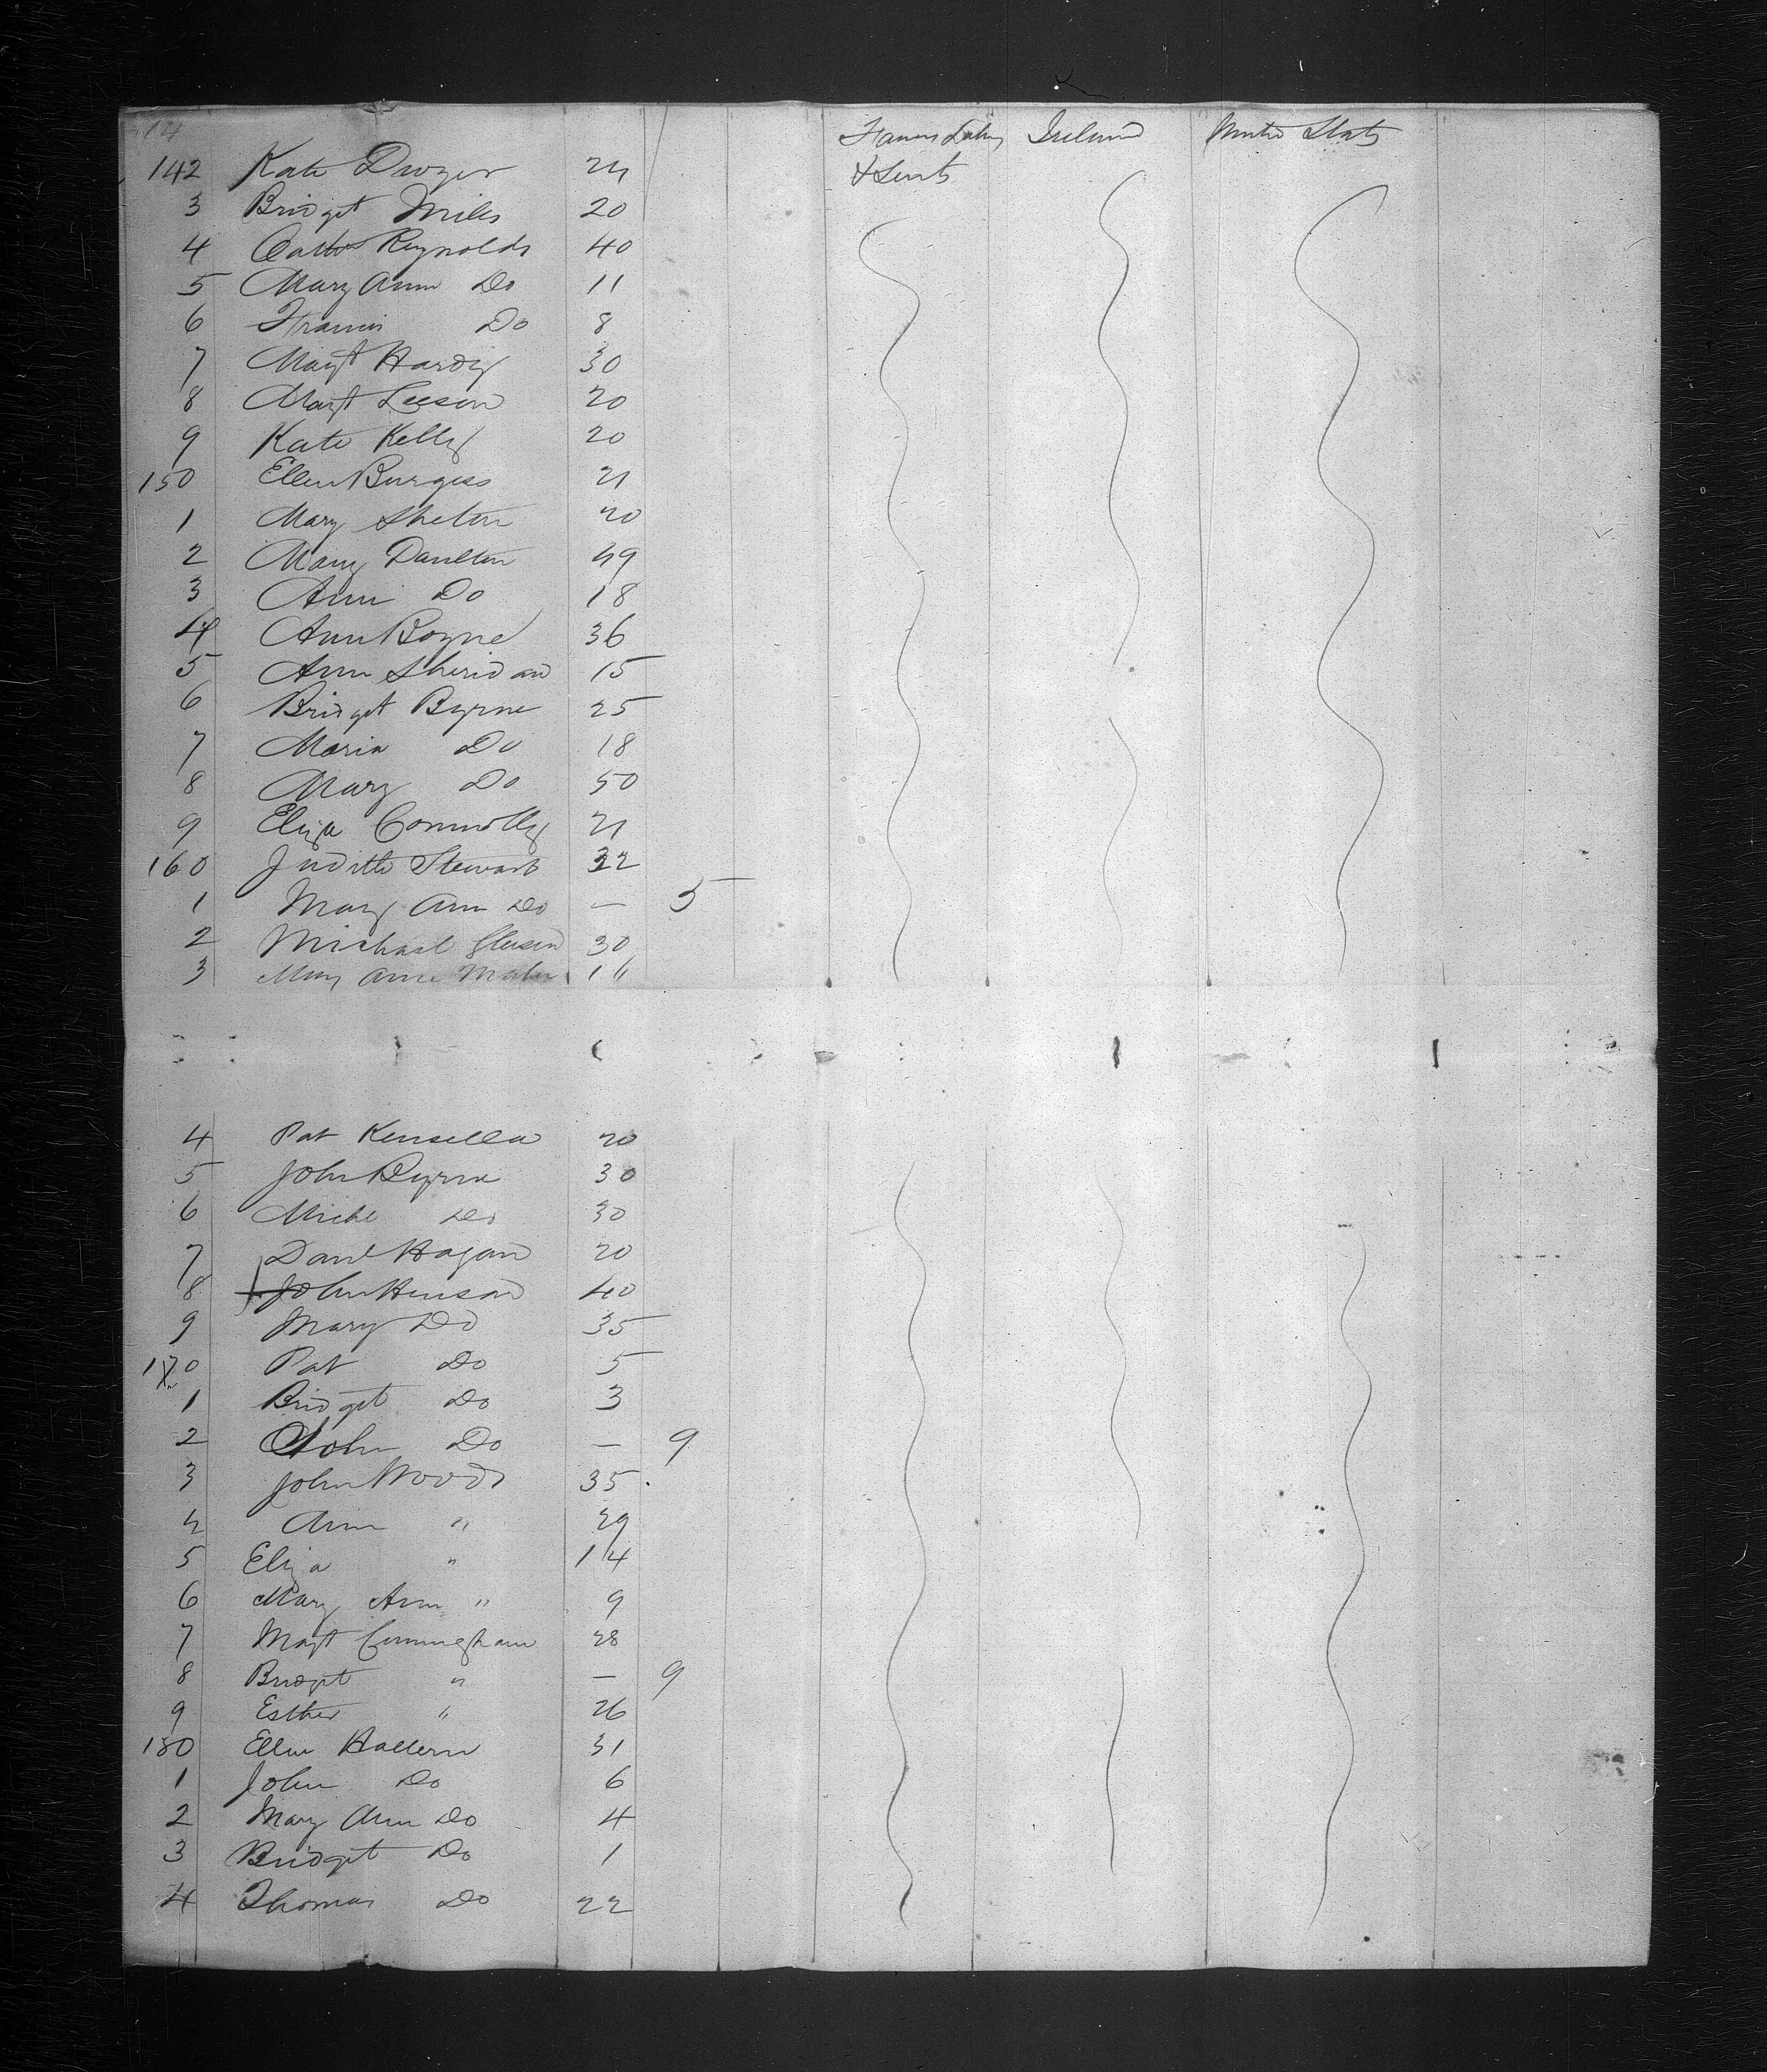 14
Ireland United States
142 Kate Dwyer 24 & Servts
3 Bridget Miles 20
4 Cath Reynolds 40
5 Mary Ann Do 11
6 Francis Do 8
7 Margt Hardy 30
8 Margt Leeson 20
9 Kate Kelly 20
150 Ellen Burgess 21
1 Mary Shelton 20
2 Mary Daulton 49
3 Ann Do 18
4 Ann Boyne 36
5 Ann Sheridan 15
6 Bridget Byrne 25
7 Maria Do 18
8 Mary Do 50
9 Eliza Connolly 21
160 Judith Stewart 32
1 Mary Ann Do — 5
2 Michael Gleeson 30
3 Mary Ann
4 Pat Kensella 20
5 John Byrne 30
6 Michl Do 30
7 Danl Hagan 20
8 John Henson 40
9 Mary Do 35
170 Pat Do 5
1 Bridget Do 3
2 John Do — 9
3 John Woods 35
4 Ann " 29
5 Eliza " 14
6 Mary Ann " 9
7 Margt Cunningham 28
8 Bridget " — 9
9 Esther " 26
180 Ellen Hallern 31
1 John Do 6
2 Mary Ann Do 4
3 Bridget Do 1
4 Thomas Do 22